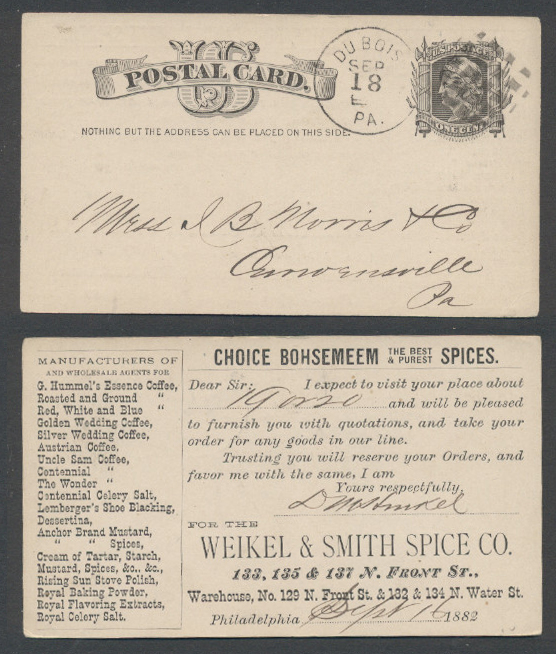 US
POSTAL CARD.
NOTHING BUT THE ADDRESS CAN BE PLACED ON THIS SIDE.
DU BOIS
SEP
18
PA.
U.S. POSTAGE
ONE CENT
Mess J B Norris & Co
Curwensville
Pa
MANUFACTURERS OF
AND WHOLESALE AGENTS FOR
G. Hummel's Essence Coffee,
Roasted and Ground "
Red, White and Blue "
Golden Wedding Coffee,
Silver Wedding Coffee,
Austrian Coffee.
Uncle Sam Coffee,
Centennial "
The Wonder "
Centennial Celery Salt,
Lemberger's Shoe Blacking,
Dessertina,
Anchor Brand Mustard,
" Spices,
Cream of Tartar, Starch,
Mustard, Spices, &c., &c.,
Rising Sun Stove Polish,
Royal Baking Powder,
Royal Flavoring Extracts,
Royal Celery Salt.
CHOICE BOHSEMEEM THE BEST & PUREST SPICES.
Dear Sir: I expect to visit your place about
and will be pleased
to furnish you with quotations, and take your
order for any goods in our line.
Trusting you will reserve your Orders, and
favor me with the same, I am
Yours respectfully,
FOR THE
WEIKEL & SMITH SPICE CO.
133, 135 & 137 N. FRONT ST.,
Warehouse, No. 129 N. Front St. & 132 & 134 N. Water St.
Philadelphia Sept 16 1882